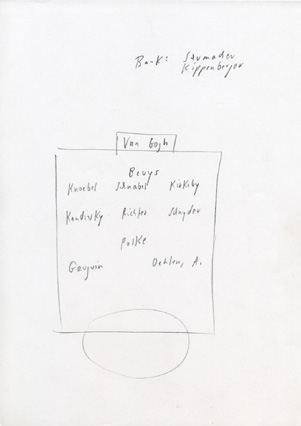 Bank: Szumader
Kippenberger
Van Gogh
Beuys
Knoebel Schnabel Kirkeby
Kandisky Richter Snyder
Polke
Gauguin Oehlen, A.